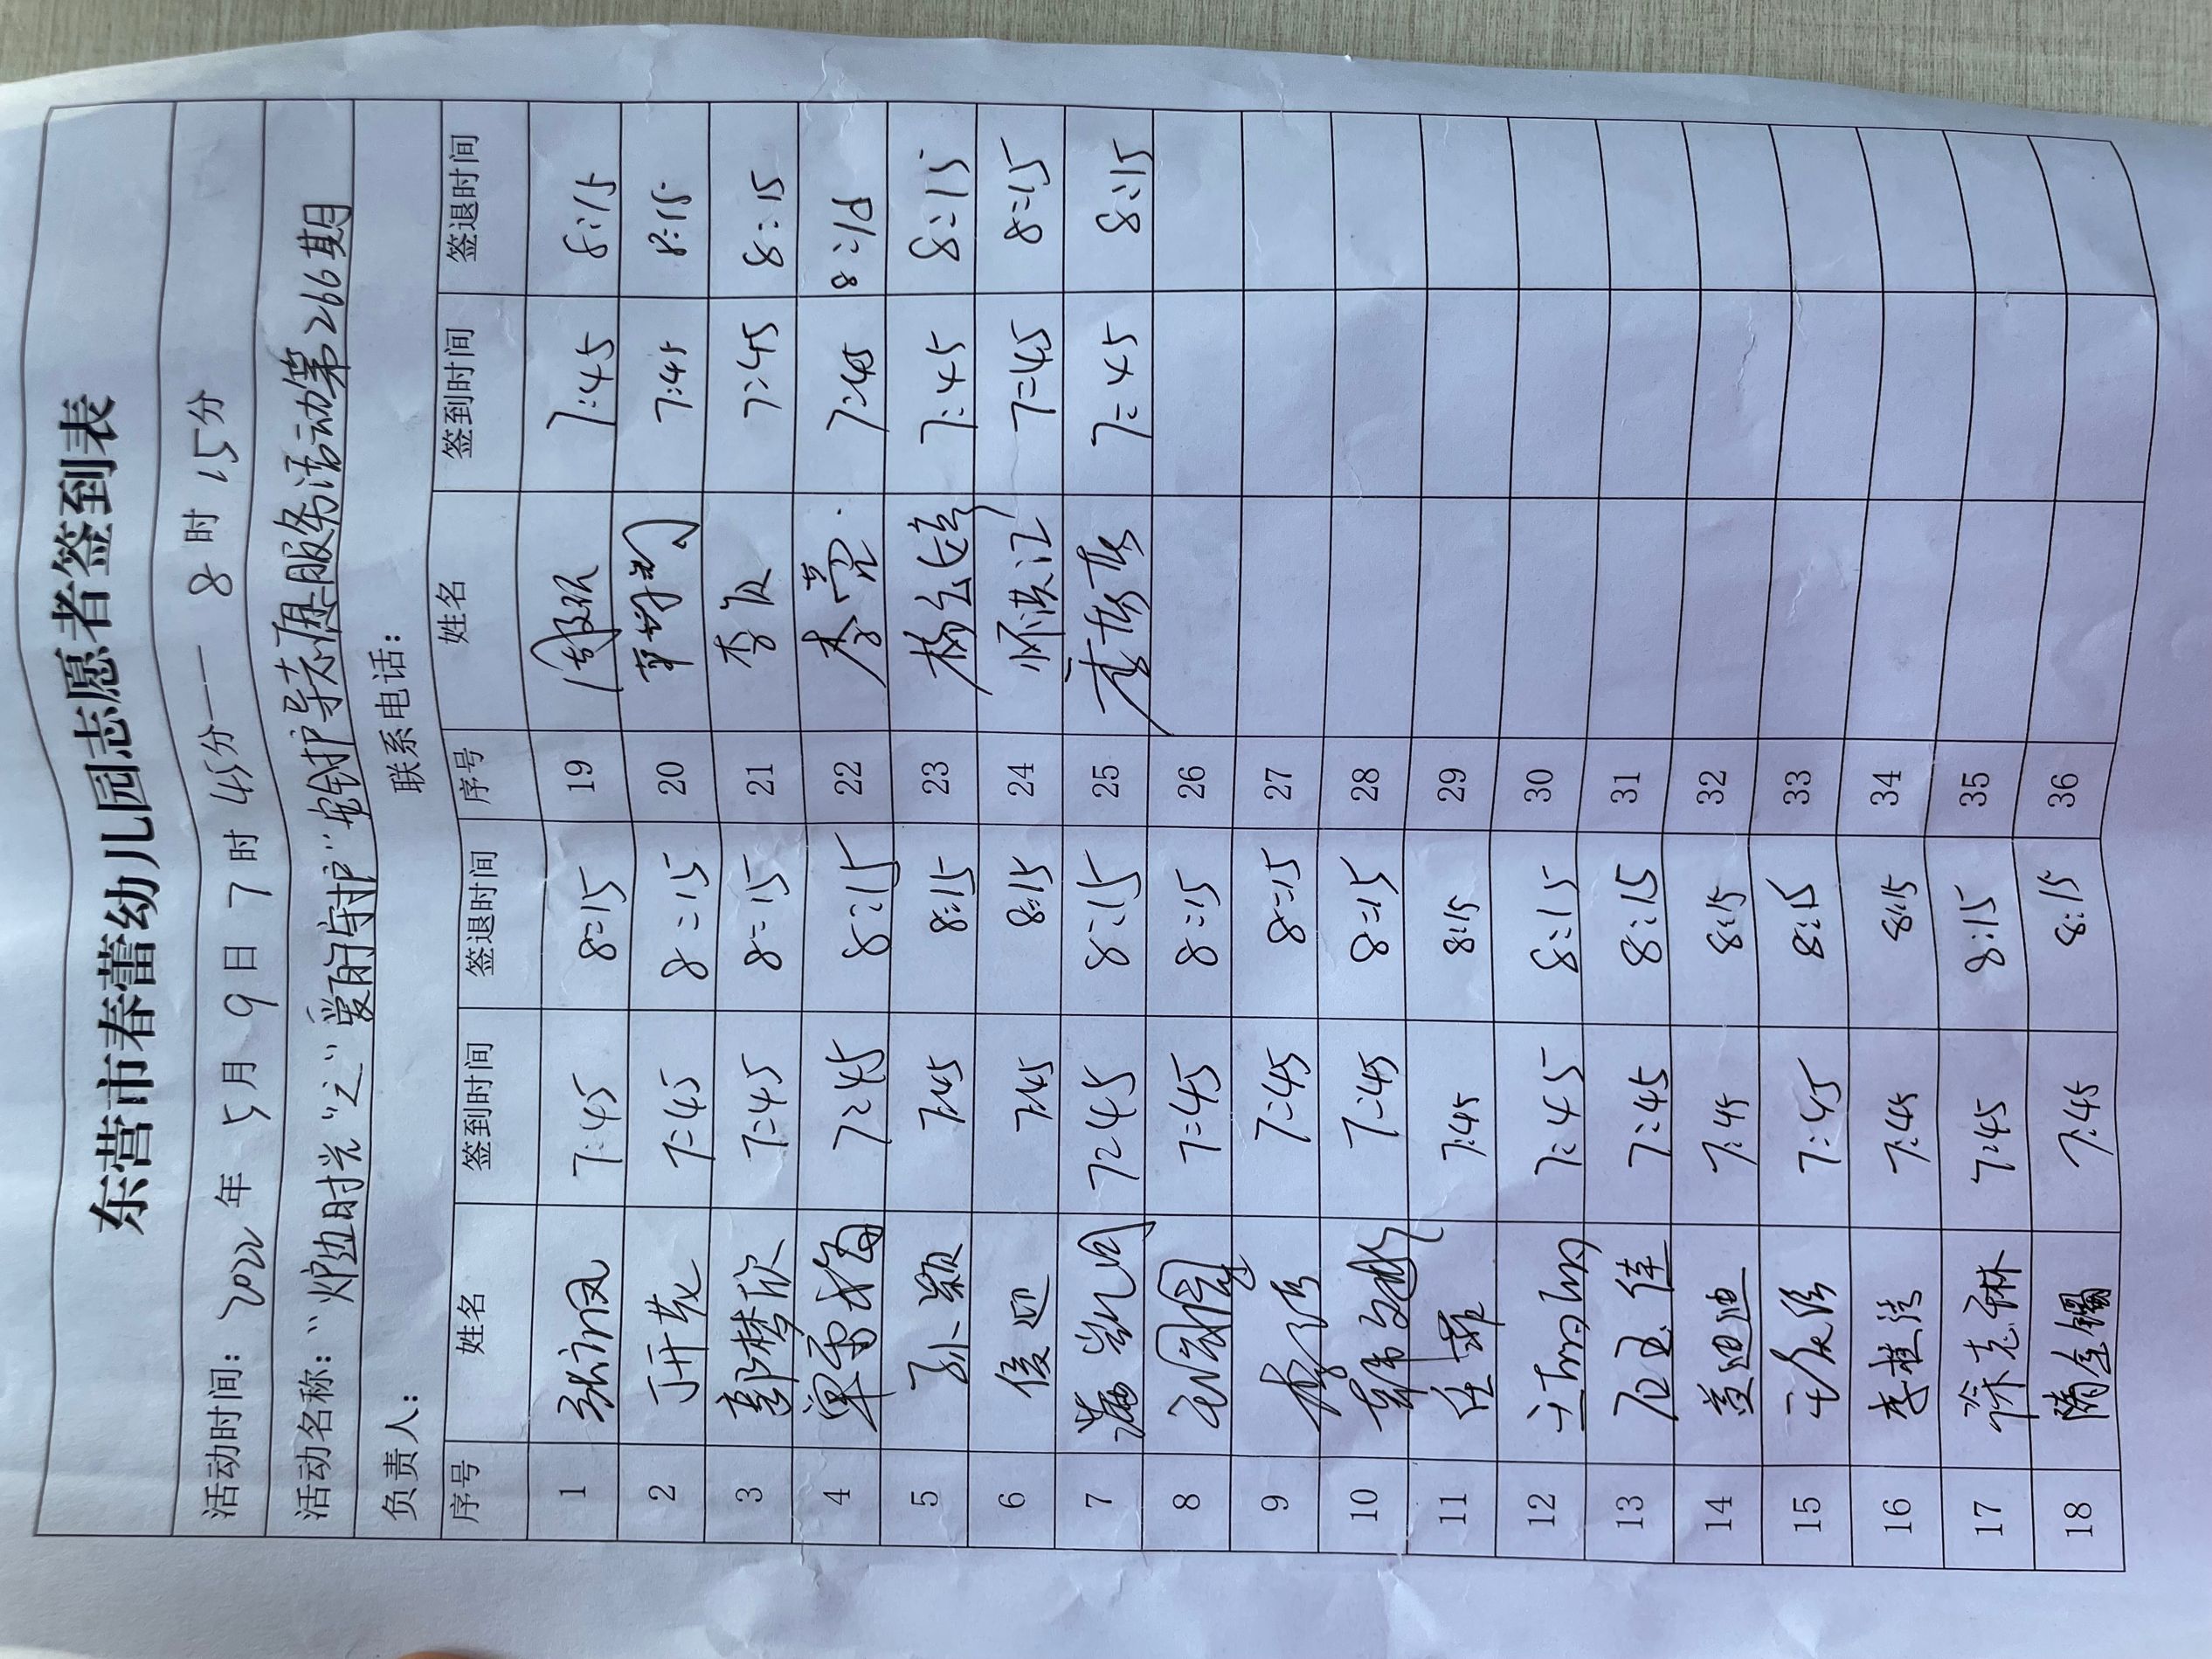 东营市春蕾幼儿园志愿者签到表
活动时间：2022年 5月 9日 7时 45分—— 8时 15分
活动名称："炉边时光"之"爱的守护"安全护导志愿服务活动第266期
负责人： 联系电话：
序号 姓名 签到时间 签退时间 序号 姓名 签到时间 签退时间
1 7:45 8:15 19 7:45 8:15
2 7:45 8:15 20 7:45 8:15
3 郭梦欣 7:45 8:15 21 7:45 8:15
4 7:45 8:15 22 李亮 7:45 8:15
5 孙颖 7:45 8:15 23 7:45 8:15
6 俊迎 7:45 8:15 24 怀洪江 7:45 8:15
7 7:45 8:15 25 7:45 8:15
8 7:45 8:15 26
9 7:45 8:15 27
10 7:45 8:15 28
11 任菲 7:45 8:15 29
12 7:45 8:15 30
13 石玉佳 7:45 8:15 31
14 7:45 8:15 32
15 7:45 8:15 33
16 7:45 8:15 34
17 7:45 8:15 35
18 隋金镯 7:45 8:15 36